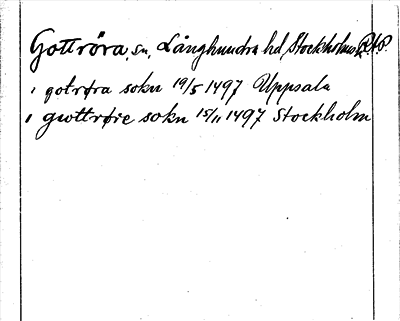 Gottröra, sn, Långhundra hd, Stockholms
i gotrøra sokn 19/5 1497 Uppsala
i gwttrøre sokn 15/11 1497 Stockholm